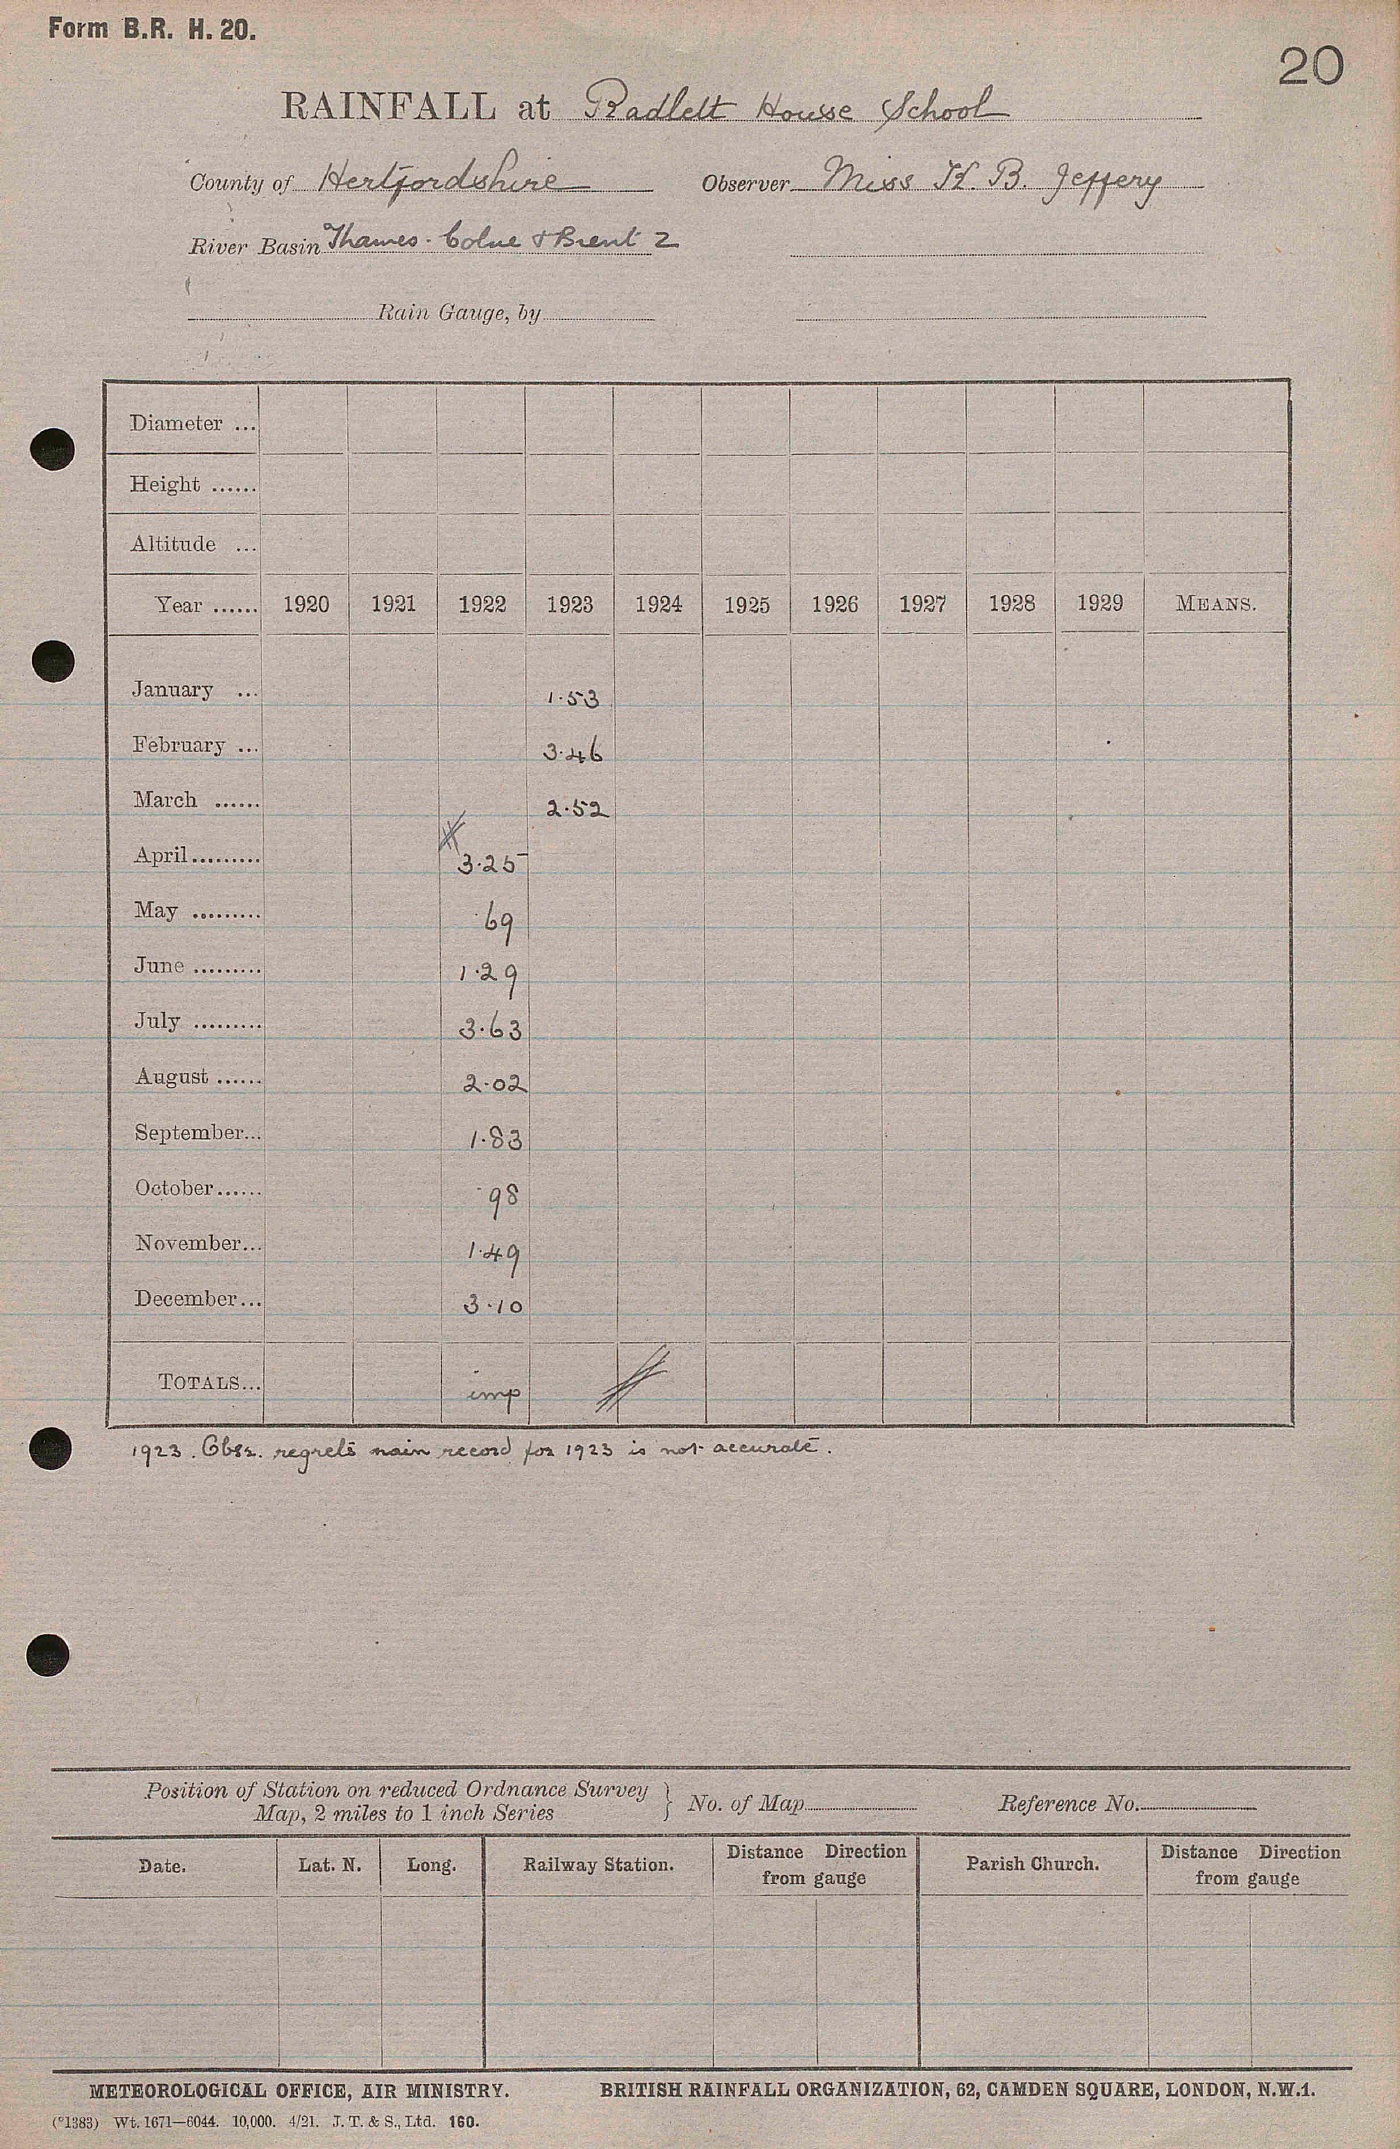 Form B.R. H. 20.
20
RAINFALL at Radlett House School
County of Hertfordshire Observer Miss K. B. Jeffery
River Basin Thames. Colne & Brent 2
Rain Gauge, by
Diameter ...
Height ......
Altitude ...
Year ...... 1920 1921 1922 1923 1924 1925 1926 1927 1928 1929 MEANS.
January ... 1.53
February ... 3.46
March ...... 2.52
April......... 3.25
May ......... .69
June ......... 1.29
July ......... 3.63
August ...... 2.02
September... 1.83
October...... .98
November... 1.49
December... 3.10
TOTALS... imp
1923. Obsr. regrets rain record for 1923 is not accurate.
Position of Station on reduced Ordnance Survey
Map, 2 miles to 1 inch Series } No. of Map Reference No.
Date. Lat. N. Long. Railway Station. Distance Direction from gauge Parish Church. Distance Direction from gauge
METEOROLOGICAL OFFICE, AIR MINISTRY. BRITISH RAINFALL ORGANIZATION, 62, CAMDEN SQUARE, LONDON, N.W.1.
(*1383) Wt. 1671—6044. 10,000. 4/21. J. T. & S., Ltd. 160.